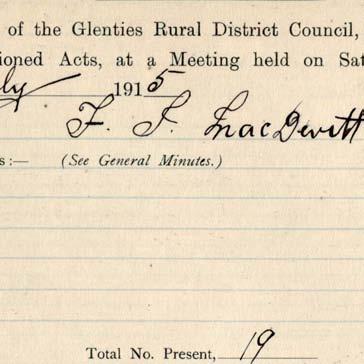 of the Glenties Rural District Council,
tioned Acts, at a Meeting held on Sat
ly 1915
F. J. MacDevitt
s :— (See General Minutes.)
Total No. Present, 19